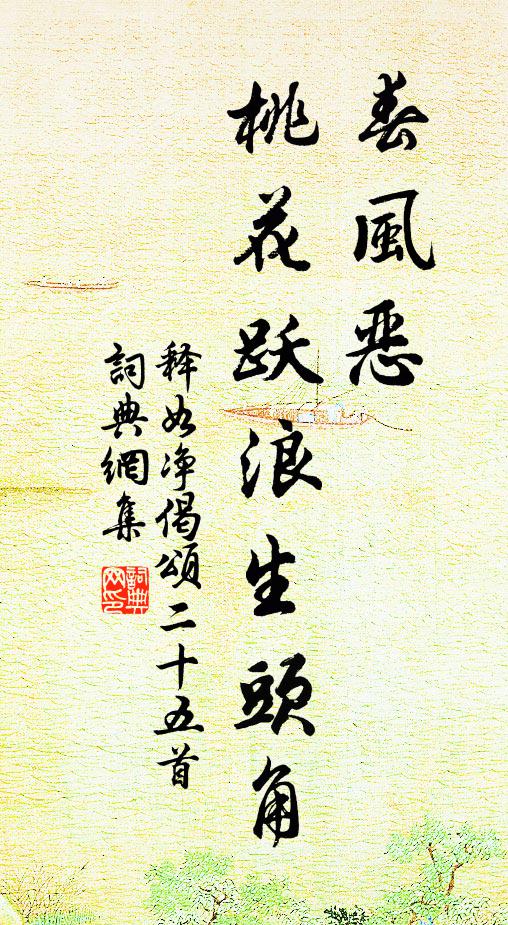 春風恶
桃花跃浪生頭角
释如净偈頌二十五首
詞典網集
詞典网印